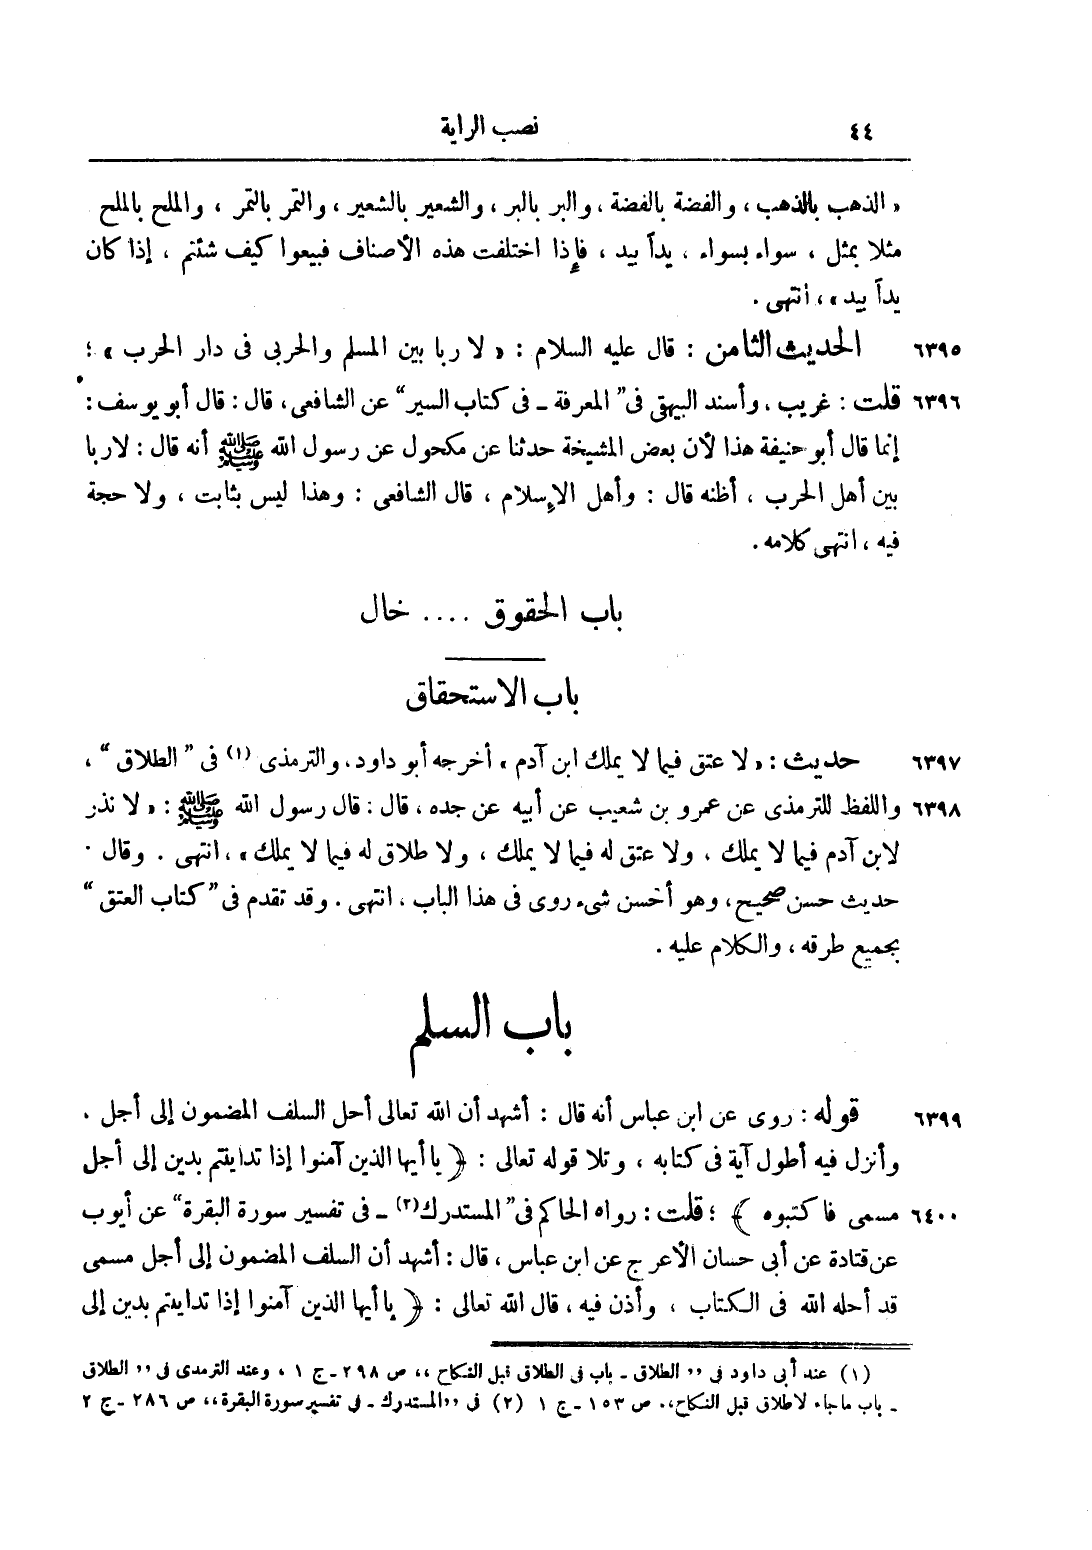 ٤٤ نصب الراية
« الذهب بالذهب ، والفضة بالفضة ، والبر بالبر ، والشعير بالشعير ، والتمر بالتمر ، والملح بالملح
مثلا بمثل ، سواء بسواء ، يداً بيد ، فإذا اختلفت هذه الأصناف فبيعوا كيف شئتم ، إذا كان
يداً بيد » ، انتهى .
٦٣٩٥ الحديث الثامن : قال عليه السلام : « لا ربا بين المسلم والحربى فى دار الحرب » ؛
٦٣٩٦ قلت : غريب ، وأسند البيهقى فى " المعرفة ـ فى كتاب السير " عن الشافعى ، قال : قال أبو يوسف :
إنما قال أبو حنيفة هذا لأن بعض المشيخة حدثنا عن مكحول عن رسول الله ﷺ أنه قال : لا ربا
بين أهل الحرب ، أظنه قال : وأهل الإسلام ، قال الشافعى : وهذا ليس بثابت ، ولا حجة
فيه ، انتهى كلامه .
باب الحقوق .... خال
باب الاستحقاق
٦٣٩٧ حديث : « لا عتق فيما لا يملك ابن آدم » أخرجه أبو داود ، والترمذى (١) فى " الطلاق " ،
٦٣٩٨ واللفظ للترمذى عن عمرو بن شعيب عن أبيه عن جده ، قال : قال رسول الله ﷺ : « لا نذر
لابن آدم فيما لا يملك ، ولا عتق له فيما لا يملك ، ولا طلاق له فيما لا يملك » ، انتهى . وقال ·
حديث حسن صحيح ، وهو أحسن شىء روى فى هذا الباب ، انتهى . وقد تقدم فى " كتاب العتق "
بجميع طرقه ، والكلام عليه .
باب السلم
٦٣٩٩ قوله : روى عن ابن عباس أنه قال : أشهد أن الله تعالى أحل السلف المضمون إلى أجل .
وأنزل فيه أطول آية فى كتابه ، وتلا قوله تعالى : ﴿ يا أيها الذين آمنوا إذا تداينتم بدين إلى أجل
٦٤٠٠ مسمى فاكتبوه ﴾ ؛ قلت : رواه الحاكم فى " المستدرك (٢) ـ فى تفسير سورة البقرة " عن أيوب
عن قتادة عن أبى حسان الأعرج عن ابن عباس ، قال : أشهد أن السلف المضمون إلى أجل مسمى
قد أحله الله فى الكتاب ، وأذن فيه ، قال الله تعالى : ﴿ يا أيها الذين آمنوا إذا تداينتم بدين إلى
(١) عند أبى داود فى ،، الطلاق ـ باب فى الطلاق قبل النكاح ،، ص ٢٩٨ ـ ج ١ ، وعند الترمذى فى ،، الطلاق
ـ باب ما جاء لا طلاق قبل النكاح ،، ص ١٥٣ ـ ج ١ (٢) فى ،، المستدرك ـ فى تفسير سورة البقرة ،، ص ٢٨٦ ـ ج ٢